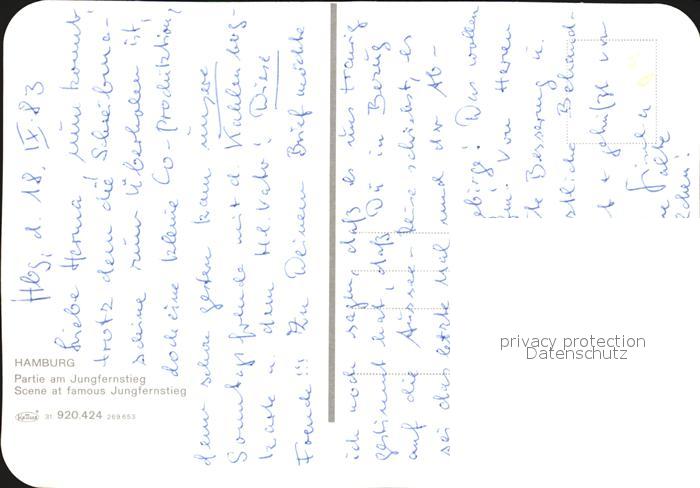 Hbg, d. 18. IX. 83
Liebe Herma, nun kommt
trotz dem die Schreibma-
schine zum Überholen ist,
doch eine kleine Co-Produktion,
denn schon gestern kam unsere
Sonntagsfreude mit d. Kahlenbg-
karte u. dem Hl. Vater! Diese
Freude!!! Zu Deinem Brief möchte
ich noch sagen, daß es uns traurig
gestimmt hat, daß Du in Bezug
auf die Aussee-Reise schriebst, es
sei das letzte Mal und der Ab-
gebirge! Das wollen
Von Herzen
te Besserung u.
Behand-
t + gehüfzt von
HAMBURG
Partie am Jungfernstieg
Scene at famous Jungfernstieg
Krüger 31 920.424 269.653
privacy protection
Datenschutz